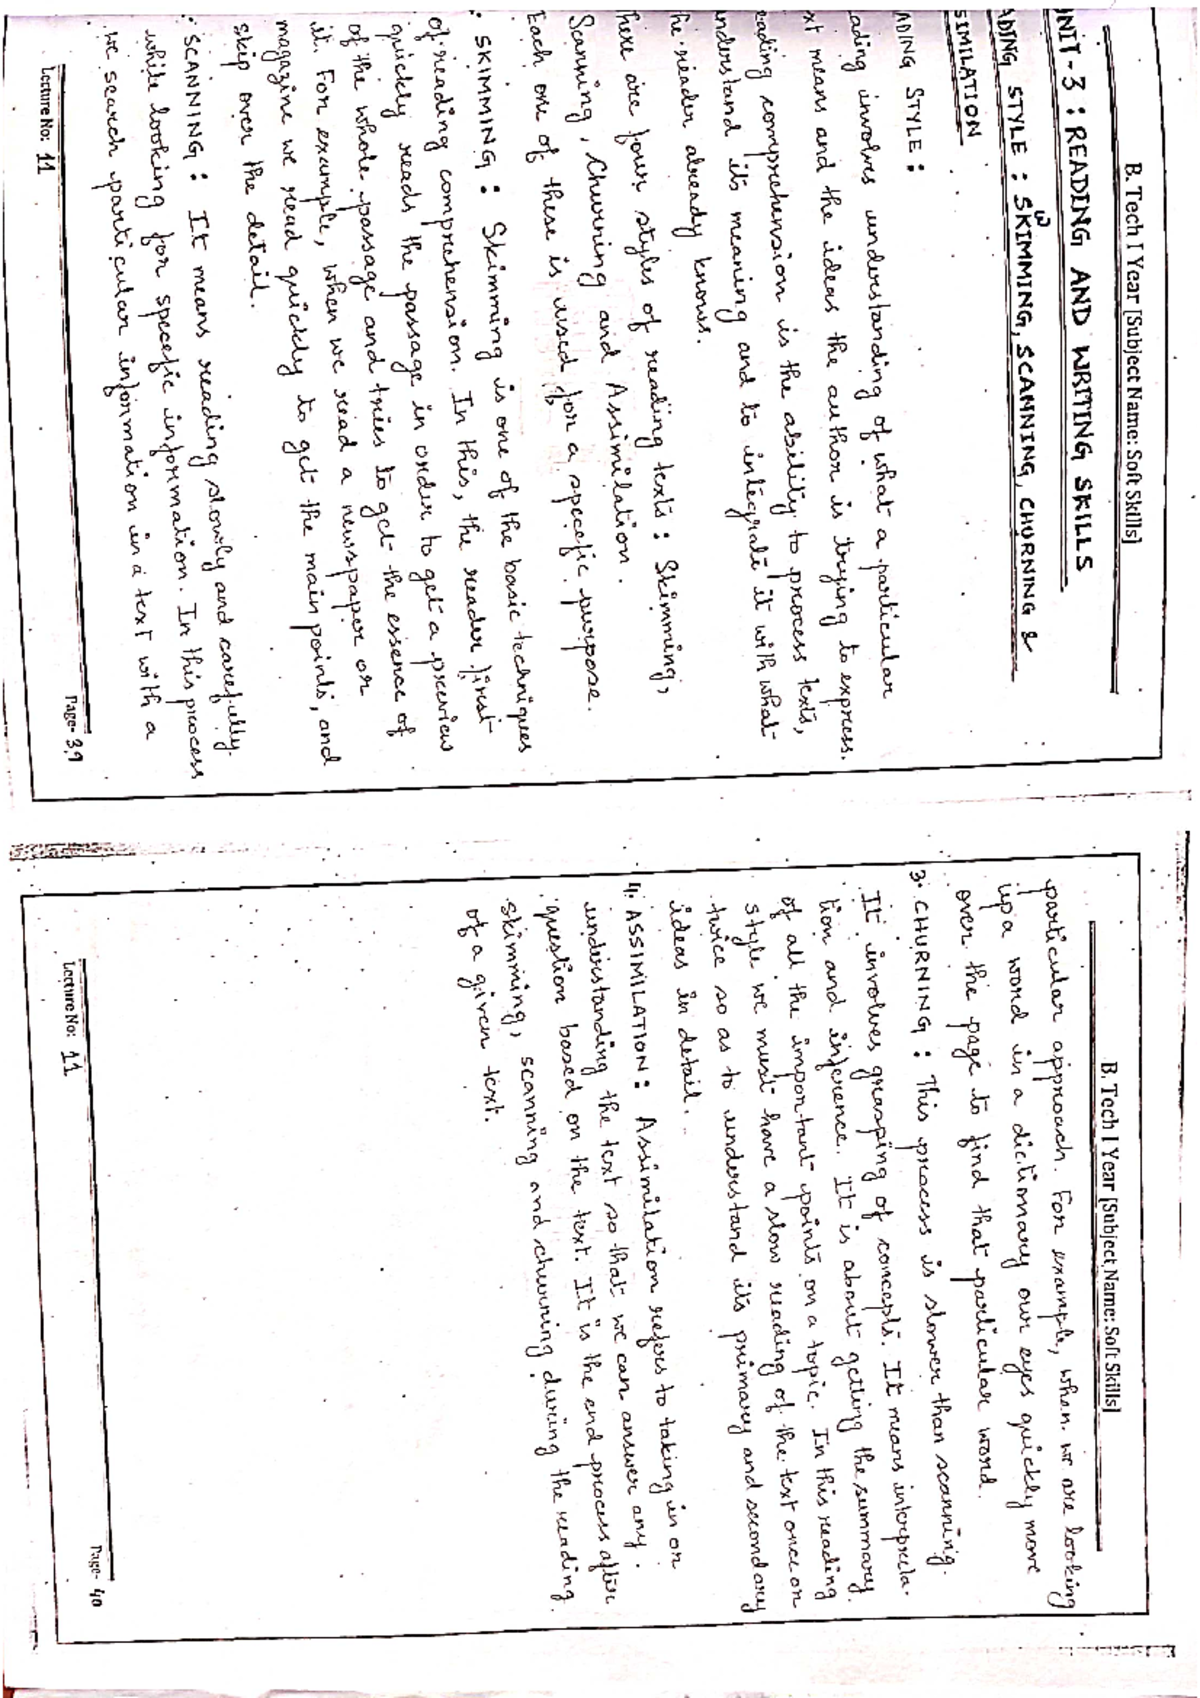 B. Tech I Year [Subject Name: Soft Skills]
UNIT-3 : READING AND WRITING SKILLS
ADING STYLE : SKIMMING, SCANNING, CHURNING &
SIMILATION
ADING STYLE :
ading involves understanding of what a particular
xt means and the ideas the author is trying to express.
eading comprehension is the ability to process texts,
nderstand its meaning and to integrate it with what
he reader already knows.
here are four styles of reading texts : Skimming,
Scanning, Churning and Assimilation.
Each one of these is used for a specefic purpose.
: SKIMMING : Skimming is one of the basic techniques
of reading comprehension. In this, the reader first
quickly reads the passage in order to get a preview
of the whole passage and tries to get the essence of
it. For example, when we read a newspaper or
magazine we read quickly to get the main points, and
skip over the detail.
: SCANNING : It means reading slowly and carefully
while looking for specefic information. In this process
we search particular information in a text with a
Lecture No: 11
Page- 39
B. Tech I Year [Subject Name: Soft Skills]
particular approach. For example, when we are looking
up a word in a dictionary our eyes quickly move
over the page to find that particular word.
3. CHURNING : This process is slower than scanning.
It involves grasping of concepts. It means interpreta-
tion and inference. It is about getting the summary
of all the important points on a topic. In this reading
style we must have a slow reading of the text once or
twice so as to understand its primary and secondary
ideas in detail.
4. ASSIMILATION : Assimilation refers to taking in or
understanding the text so that we can answer any
question based on the text. It is the end process after
skimming, scanning and churning during the reading
of a given text.
Lecture No: 11
Page- 40